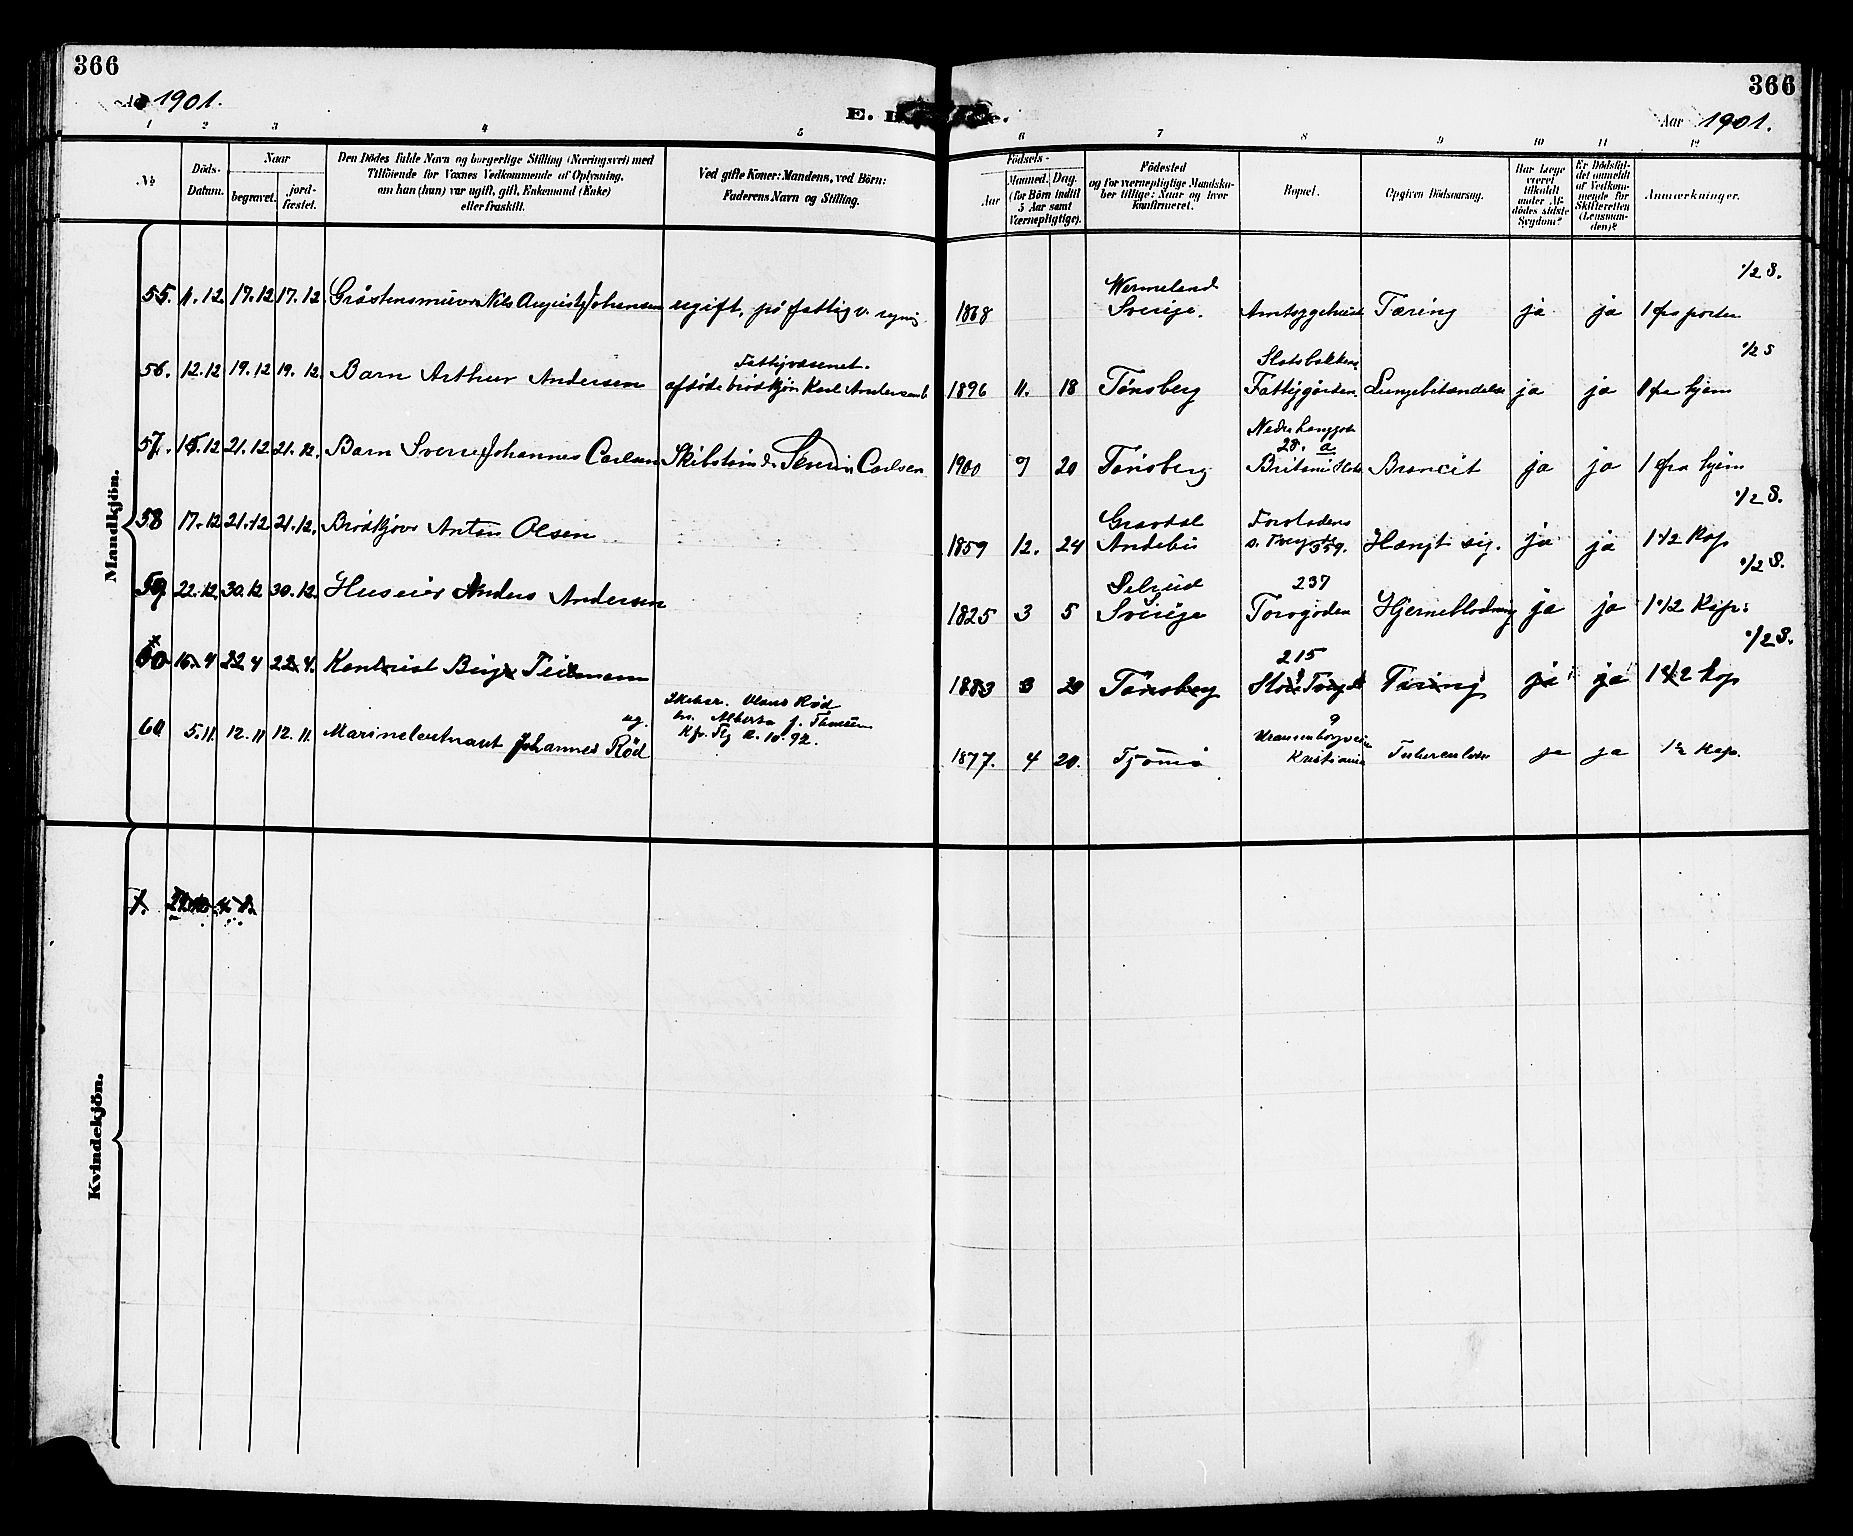 366
366
1901.
Aar 1901.
1 2 3 4 5 6 7 8 9 10 11 12
No
Döds-
Datum.
Naar
begravet.
jord-
fæstet.
Den Dödes fulde Navn og borgerlige Stilling (Næringsvei) med
Tilföiende for Voxnes Vedkommende af Oplysning,
om han (hun) var ugift, gift, Enkemand (Enke)
eller fraskilt.
Ved gifte Koner: Mandens, ved Börn:
Faderens Navn og Stilling.
Födsels-
Aar
Maaned.
Dag.
(for Börn indtil
5 Aar samt
Værnepligtige).
Födested
og for værnepligtige Mandska-
ber tillige: Naar og hvor
konfirmeret.
Bopæl.
Opgiven Dödsaarsag.
Har Læge
været
tilkaldt
under Af-
dödes sidste
Sygdom?
Er Dödsfal-
det anmeldt
af Vedkom-
mende for
Skifteretten
(Lensman-
den)?
Anmærkninger.
Mandkjön.
1/2 S.
Wermeland
55. 11.12 17.12 17.12 Gråstensmurer Nils August Johansen ugift, på fattigv. regning 1868 Sverige. Amtssygehuset Tæring ja ja 1 fra porten
1/2 S
Fattigvæsenet. Slotsbakken
56. 12.12 19.12 19.12. Barn Arthur Andersen afdöde brödkjör. Karl Andersen 1896 11. 18 Tönsberg Fattiggården. Lungebetændelse ja ja 1 fra hjem
Nedre Langgade
28. a
57. 15.12 21.12 21.12. Barn Sverre Johannes Carlsen Skibstømr. Severin Carlsen 1900 9 20 Tönsberg Britania Hotel Broncit ja ja 1 fra hjem
1/2 S.
Gravdal
58 17.12 21.12 21.12. Brödkjörer Anton Olsen 1859 12. 24 Andebu 359. Hængt sig. ja ja 1 1/2 Kap
1/2 S.
237
59 22.12. 30.12 30.12. Huseier Anders Andersen 1825 3 5 Sverige Torvgaden Hjerneblødning ja ja 1 1/2 Kap.
1/2 S.
215
60 16.4 22.4 22.4. Kontorist Teilmann 1883 3 29 Tönsberg Store Torvgd. Tæring ja ja 1 1/2 Kap
Skibsr. Olaus Röd
Alberta f.
Kfr. 2.10.92.
60 5.11. 12.11 12.11. Marineleutnant Johannes Röd ug. 1877. 4 20. Tjömö Uranienborgveien 9 Kristiania Tuberculose ja ja 1/2 Kap.
Kvindekjön.